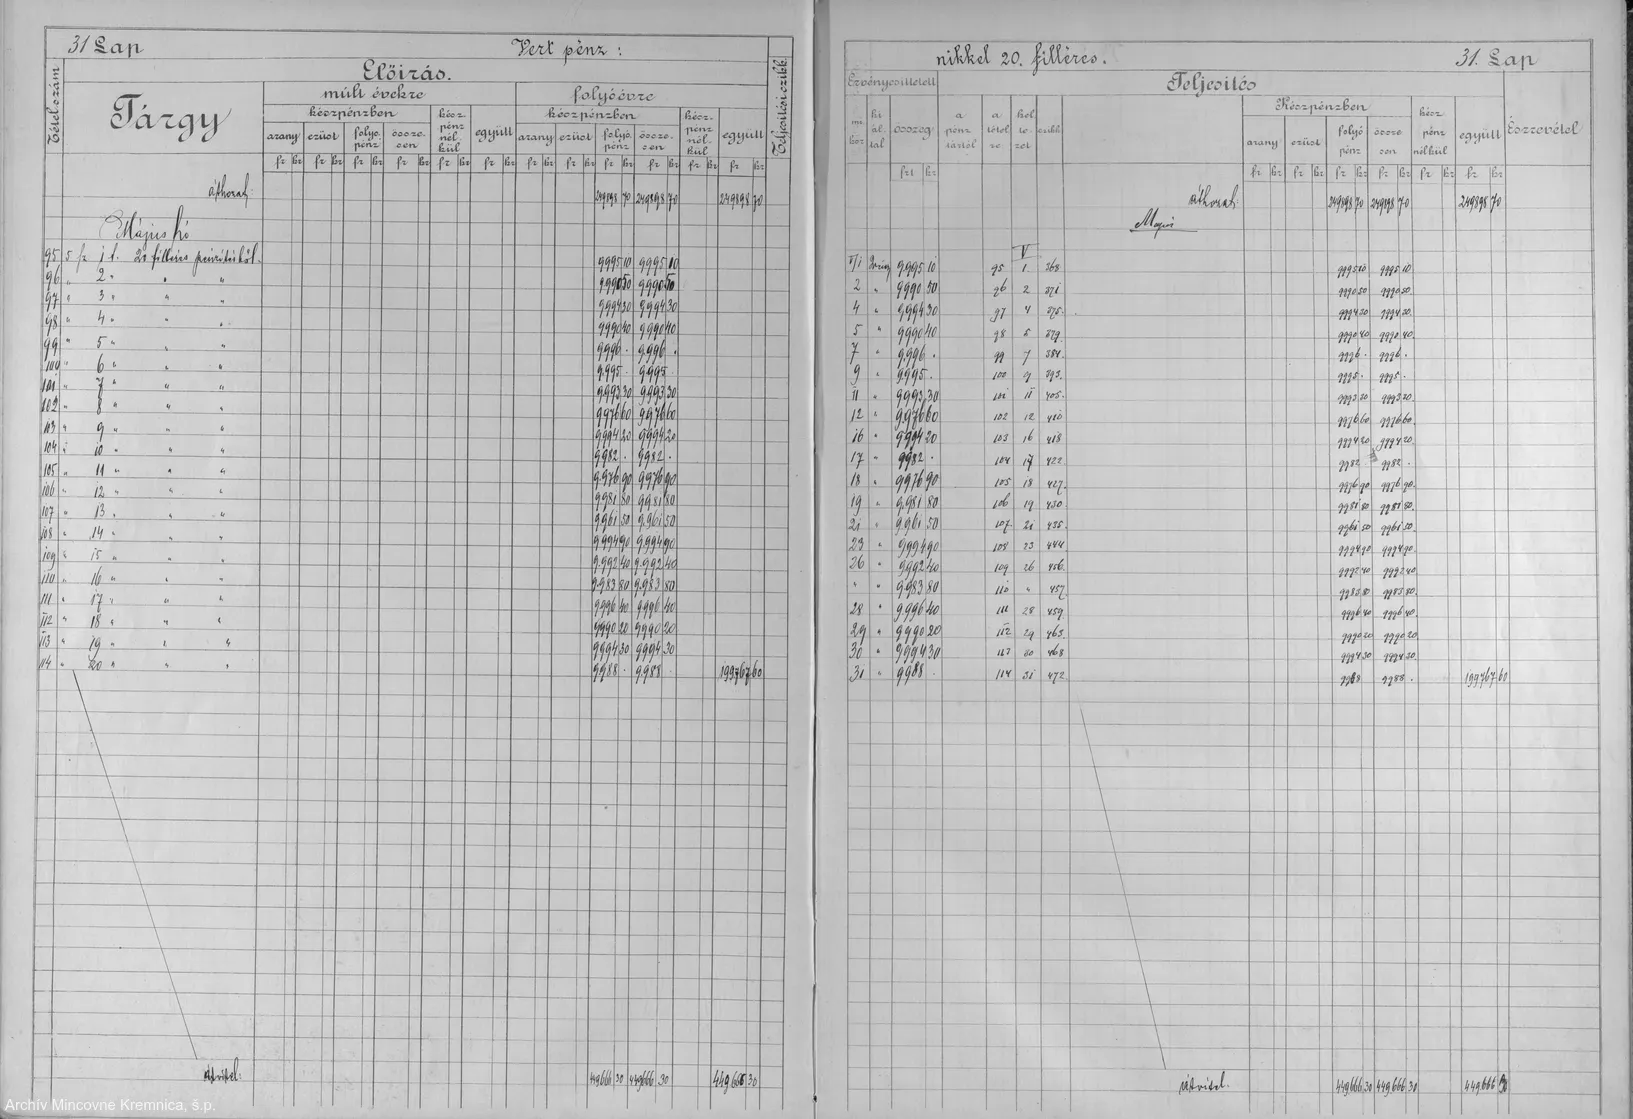 31 Lap Vert pénz :
Tételszám
Tárgy
Előirás.
Teljesitési czikk.
múlt évekre folyóévre
készpénzben kész. pénz nél- kül együtt készpénzben kész.- pénz nél.- kül együtt
arany ezüst folyó. pénz össze- sen arany ezüst folyó pénz össze.- sen
fr kr fr kr fr kr fr kr fr kr fr kr fr kr fr kr fr kr fr kr fr kr fr kr
áthozat: 249898 70 249898 70 249898 70
Május hó
95 5 fr 1 t. 20 filléres 9995 10 9995 10
96 " 2 " " " 9990 50 9990 50
97 " 3 " " " 9994 30 9994 30
98 " 4 " " " 9990 40 9990 40
99 " 5 " " " 9996 . 9996 .
100 " 6 " " " 9995 . 9995 .
101 " 7 " " " 9993 30 9993 30
102 " 8 " " " 9976 60 9976 60
103 " 9 " " " 9994 20 9994 20
104 " 10 " " " 9982 . 9982 .
105 " 11 " " " 9976 90 9976 90
106 " 12 " " " 9981 80 9981 80
107 " 13 " " " 9961 50 9961 50
108 " 14 " " " 9994 90 9994 90
109 " 15 " " " 9992 40 9992 40
110 " 16 " " " 9983 80 9983 80
111 " 17 " " " 9996 40 9996 40
112 " 18 " " " 9990 20 9990 20
113 " 19 " " " 9994 30 9994 30
114 " 20 " " " 9988 . 9988 . 199767 60
átvitel: 449666 30 449666 30 449666 30
nikkel 20. filléres. 31. Lap
Érvényesíttetett Teljesítés
Észrevétel
mi- kor ki ál- tal összeg a pénz tártól a tétel re kel te- zet czikk
Készpénzben kész pénz nélkül együtt
arany ezüst folyó pénz össze sen
frt kr fr kr fr kr fr kr fr kr fr kr fr kr
áthozat: 249898 70 249898 70 249898 70
Május
V
V/1 9995 10 95 1. 368 9995 10 9995 10
2 " 9990 50 96 2 371 9990 50 9990 50
4 " 9994 30 97 4 375. 9994 30 9994 30
5 " 9990 40 98 5 379. 9990 40 9990 40
7 " 9996 . 99 7 384. 9996 . 9996 .
9 " 9995 . 100 9 393. 9995 . 9995 .
11 " 9993 30 101 11 405. 9993 30 9993 30
12 " 9976 60 102 12 410 9976 60 9976 60
16 " 9994 20 103 16 418 9994 20 9994 20
17 " 9982 . 104 17 422 9982 9982 .
18 " 9976 90 105 18 427. 9976 90 9976 90
19 " 9981 80 106 19 430 9981 80 9981 80
21 " 9961 50 107 21 435. 9961 50 9961 50
23 " 9994 90 108 23 444 9994 90 9994 90
26 " 9992 40 109 26 456. 9992 40 9992 40
" " 9983 80 110 " 457. 9983 80 9983 80
28 " 9996 40 111 28 459. 9996 40 9996 40
29 " 9990 20 112 29 465. 9990 20 9990 20
30 " 9994 30 113 30 468 9994 30 9994 30
31 " 9988 . 114 31 472 9988 9988 . 199767 60
átvitel. 449666 30 449666 30 449666 30
Archív Mincovne Kremnica, š.p.